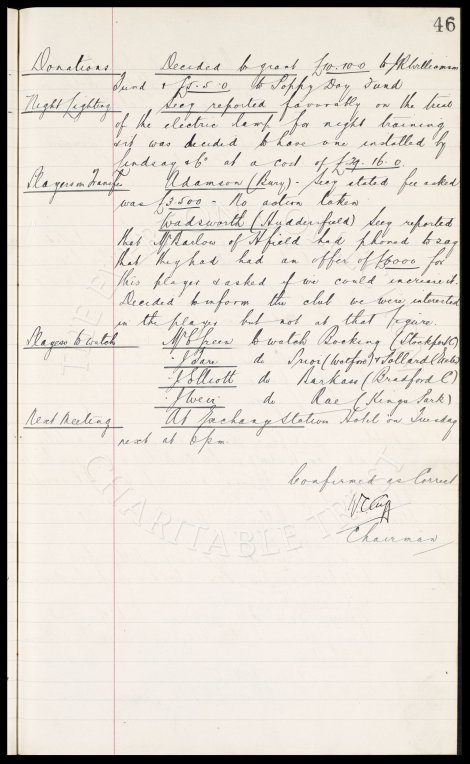 46
Donations Decided to grant £10.10.0 to J R Williamson
Fund & £5.5.0 to Poppy Day Fund
Night Lighting Secy reported favorably on the trial
of the electric lamp for night training
& it was decided to have one installed by
Lindsay & Co at a cost of £29.16.0.
Players on Transfer Adamson (Bury) - Secy stated fee asked
was £3.500 - No action taken
Wadsworth (Huddersfield) Secy reported
that Mr Barlow of H'field had phoned to say
that they had had an offer of £6000 for
this player & asked if we could increase it.
Decided to inform the club we were interested
in the player but not at that figure.
Players to Watch Mr C Green to watch Bocking (Stockport C)
" J Dare do Prior (Watford) & Pollard (Exeter)
" J Elliott do Barkass (Bradford C)
" J Weir do Rae (Kings Park)
Next Meeting At Exchange Station Hotel on Tuesday
next at 6pm.
Confirmed as Correct
Chairman
CHARITABLE TRUST